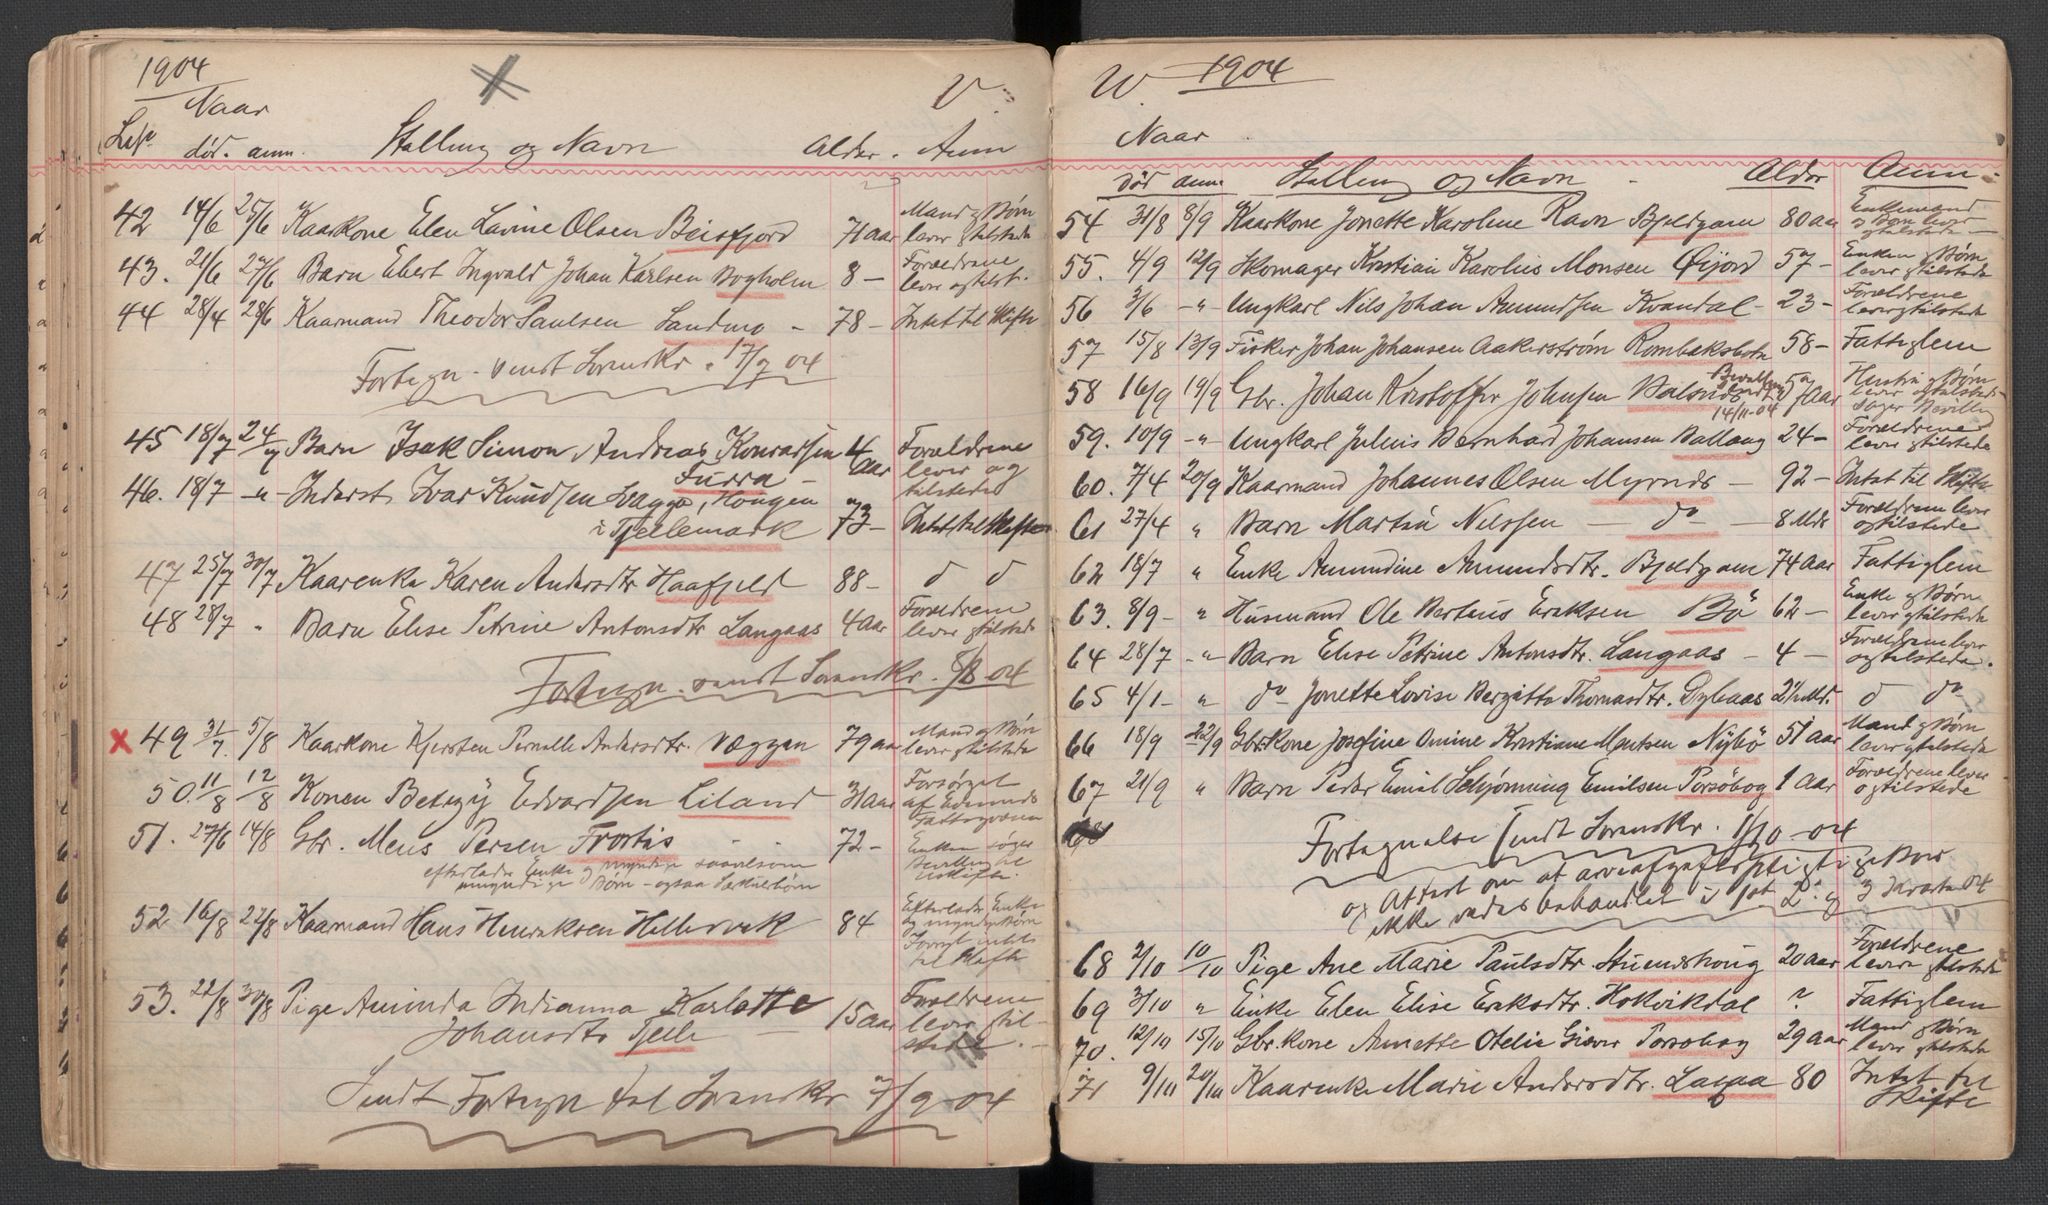 1904
Naar
V.
LNo død. anm. Stilling og Navn Alder. Anm
42 14/6 25/6 Kaarkone Elen Lavine Olsen Beisfjord 71 aar Mand og Børn
lever tilstede
43. 21/6 27/6 Barn Ebert Ingvald Johan Karlsen Bogholm 8 – Forældrene
lever og tilst.
44 28/4 28/6 Kaarmand Theodor Paulsen Sandmo – 78 – Intet til Skifte
Fortegn. sendt Sorenskr. 17/7 04
45 18/7 24/7 Barn Isak Simon Andreas Konradsen 4 aar Forældrene
Furra – lever og
tilstede
46. 18/7 –"– Inderst Ivar Knudsen Hougen
i Tjellemark 73 – Intet til Skifte
47 25/7 30/7 Kaarenke Karen Andersdtr Haafjeld 88 – d d
48 28/7 " Barn Elise Petrine Antonsdtr Langaas 4 aar Forældrene
lever tilstede
Fortegn. sendt Sorenskr. 04
x 49 31/7. 5/8 Kaarkone Kjersten Pernille Andersdtr. Væggen 79 aar Mand og Børn
lever tilstede
50. 11/8 12/8 Konen Betzy Edvardsen Liland 31 aar Forsørget
af
Fattigvæsen
51. 27/6 14/8 Gbr. Mens Persen Frostis – 72 – Enken søger
Bevilling til
Skifte.
efterlader Enke og myndige saavelsom
umyndige Børn – ogsaa Særkulbørn
52 16/8 27/8 Kaarmand Hans Henriksen Hellervik 84 Efterlader Enke
og myndige Børn
intet
til Skifte
53. 22/8 30/8 Pige Aminda Indianna Karlotte 15 aar Forældrene
Johansdtr Tjelle – lever til-
stede. –
Sendt Fortegn til Sorenskr 7/9 04
W. 1904
Naar
Død anm. Stilling og Navn – Alder Anm.
54 31/8 8/9 Kaarkone Jonette Karoline Ravn Bjeldgam 80 aar Enkemand
og Børn lever
og tilstede –
55. 4/9 12/9 Skomager Kristian Karolius Monsen Øijord 57 – Enken og Børn
lever tilstede
56 3/6 –"– Ungkarl Nils Johan Amundsen Kvandal – 23 – Forældrene
lever og tilstede
57 15/8 13/9 Fisker Johan Johansen Aakerstrøm Rombaksbotn 58 – Fattiglem
58 16/9 19/9 Gbr. Johan Kristoffer Johnsen 57 aar Hustru og Børn
14/11-04 lever og tilstede
søger Bevilling
59. 10/9 –"– Ungkarl Julius Bernhard Johansen Ballang 24 – Forældrene
lever tilstede
60. 7/4 20/9 Kaarmand Johannes Olsen Myrnes – 92 – Intet til Skifte
61 27/4 " Barn Martin Nilssen – do – 8 Mdr Forældrene lever
og tilstede
62 18/7 " Enke Amundine Amundsdtr. Bjeldgam 74 aar Fattiglem
63. 8/9 – " Husmand Ole Berteus Eriksen Bø 62 – Enke og Børn
lever tilstede
64 28/7 –"– Barn Elise Petrine Antonsdtr. Langaas – 4 – Forældrene lever
og tilstede.
65 4/1 – " do Jonette Lovise Bergitta Thomasdtr. Dybaas 2½ Md. d do
66 18/9 22/9 Gbr.kone Josefine Omine Kristiane Montsen Nybø 51 aar Mand og Børn
lever tilstede
67 21/9 " Barn Peder Emil Schjønning Emilsen Porsøbog 1 aar Forældrene lever
og tilstede
68
Fortegnelse sendt Sorenskr. 1/10 – 04
og Attest om at arveafgiftspligtige Boer
ikke var behandlet i 1st 2. og 3 Kvartal 04
68 2/10 10/10 Pige Ane Marie Paulsdtr. 20 aar Forældrene
lever tilstede
69 3/10 " Enke Elen Elise Eriksdtr. Hokvikdal " Fattiglem
70. 12/10 15/10 Gbr.kone Annette Otelie Giæver Porsøbog 29 aar Mand og Børn
lever tilstede
71 9/10 20/10 Kaarenke Marie Andersdtr. 80 Intet til
Skifte